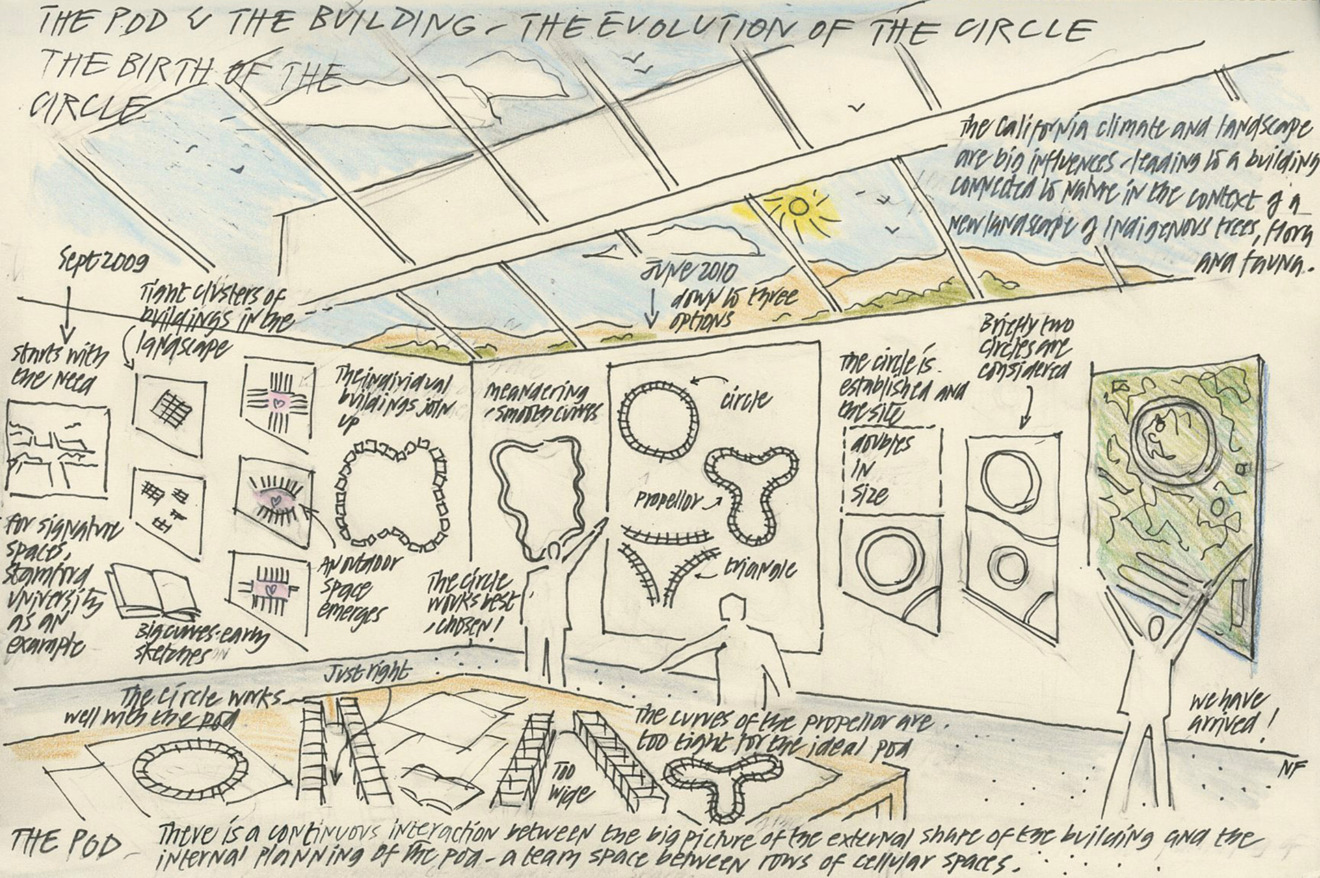 THE POD & THE BUILDING - THE EVOLUTION OF THE CIRCLE
THE BIRTH OF THE
CIRCLE
The California climate and landscape
are big influences - leading to a building
connected to nature in the context of a
new landscape of indigenous trees, flora
and fauna.
Sept 2009
starts with
the need
Tight clusters of
buildings in the
landscape
for signature
spaces,
Stamford
University
as an
example
Big curves - early
sketches
An outdoor
space
emerges
The individual
buildings join
up
meandering
, smooth curves
The circle
works best
, chosen!
June 2010
down to three
options
circle
propellor
triangle
The circle is
established and
the site
doubles
in
size
Briefly two
circles are
considered
we have
arrived!
NF
The circle works
well with the pod
Just right
Too
wide
The curves of the propellor are
too tight for the ideal pod
THE POD - There is a continuous interaction between the big picture of the external shape of the building and the
internal planning of the pod - a team space between rows of cellular spaces.